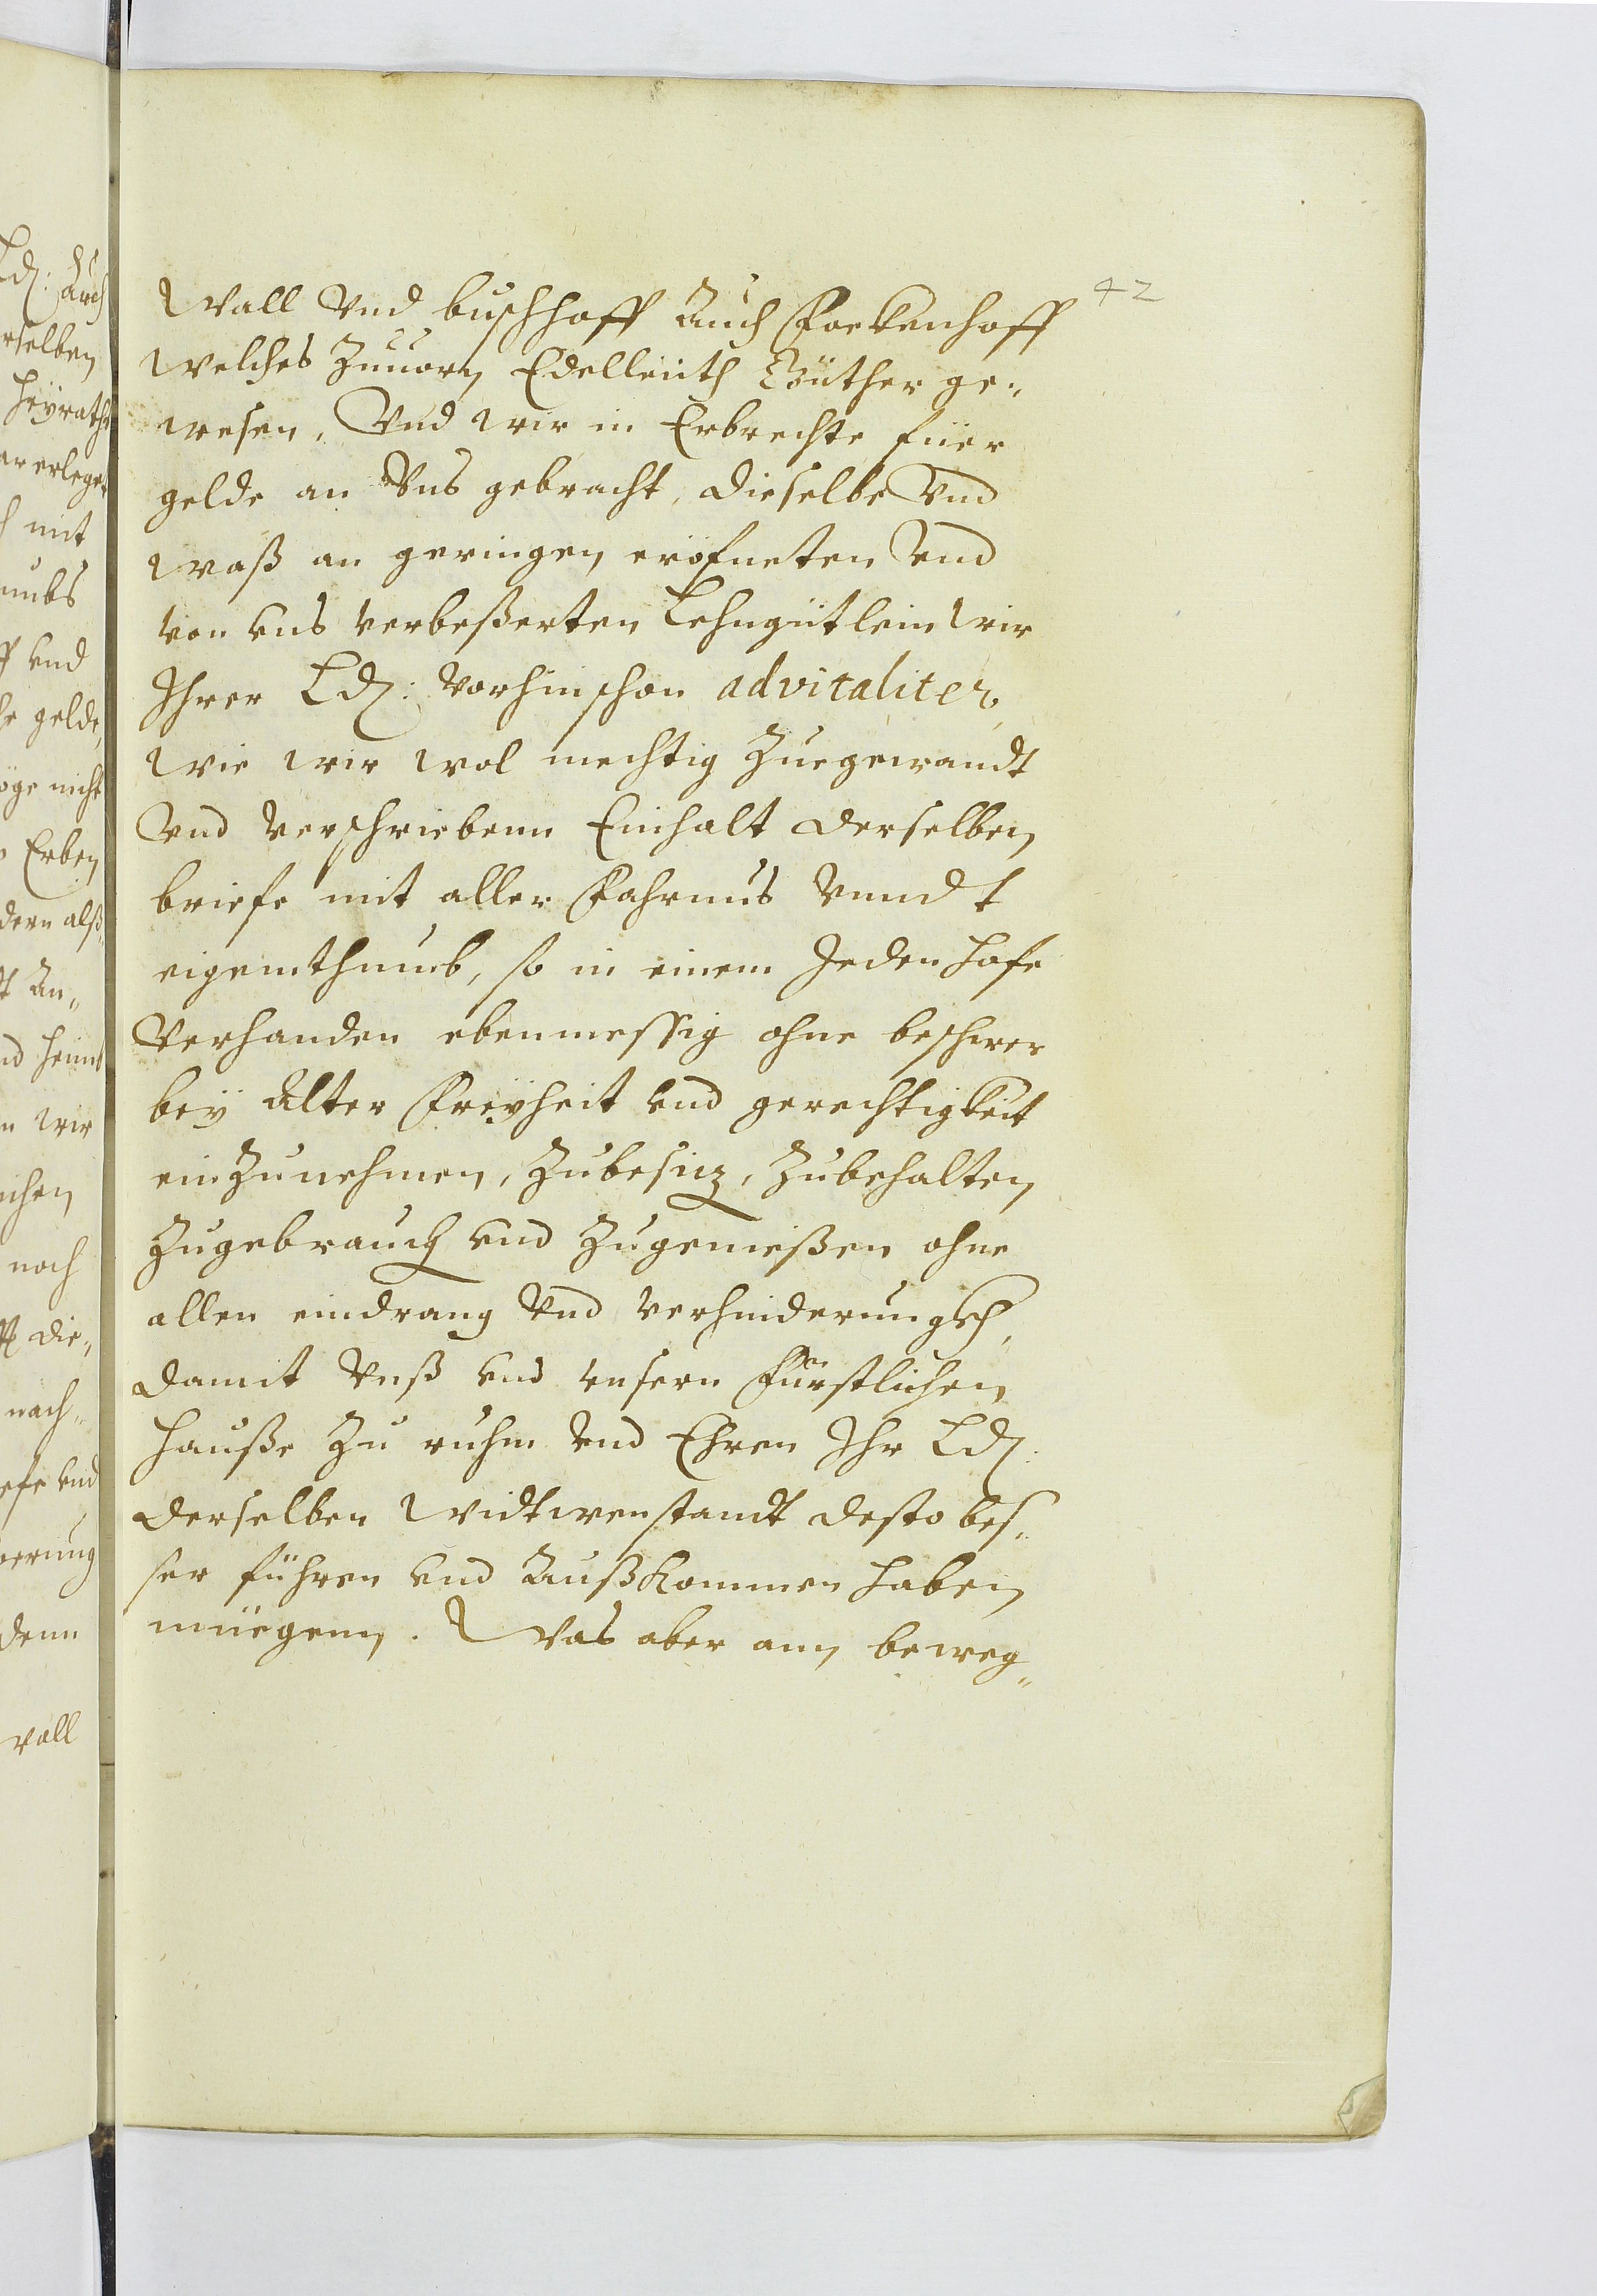 42
Wall Vnd buschhoff Auch Fockenhoff
Welches Zuuorn Edelleuth Güther ge„
wesen, Vnd wir in Erbrechte fuer
gelde an Vns gebracht, dieselbe Vnd
waß an geringen eröfneten Vnd
von vns verbeßerten Lehngütlein wir
Ihrer Ld: Vorhin schon advitaliter,
Wie wir wol mechtig Zuegewandt
Vnd Verschriebenn Einhalt derselben
briefe mit aller Fahrnus Vnndt
eigenthumb, so in einem Jeden hofe
Verhanden ebenmessig ohne beschwer
beÿ Alter Freÿheit vnd gerechtigkeit
ein Zunehmen, Zubesitz, Zubehalten
Zugebrauch vnd Zugenießen ohne
allen eindrang Vnd Verhinderung
damit Vnß vnd vnsern Fürstlichen
hauße Zu ruhm Vnd Ehren Ihr Ld:
derselben Widtwenstandt desto bes„
ser führen vnd Außkommen haben
müegenn. Was aber ann beweg„
Ld: Auch
rselben
heÿrath
er erlege
mit
vnd
gelde,
öge nicht
Erben
dern alß„
An„
wir
noch
die„
nach„
efe vnd
erung
denn
Wall